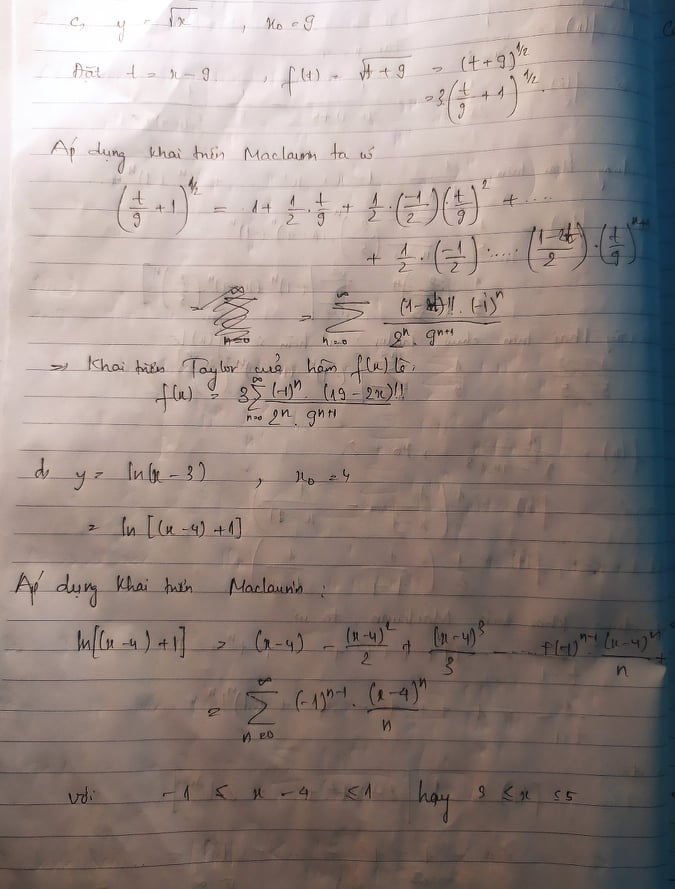 c, y = √x , x₀ = 9
Đặt t = x - 9 , f(t) = √(t + 9) = (t + 9)^(1/2)
= 3(t/9 + 1)^(1/2).
Áp dụng khai triển Maclaurin ta có
(t/9 + 1)^(1/2) = 1 + 1/2 . t/9 + 1/2 . (-1/2) (t/9)^2 + ....
+ 1/2 . (-1/2) ..... (t/9)
= Σ_{n=0}^{∞} (-1)^n / (2^n . 9^(n+1))
=> Khai triển Taylor của hàm f(x) là:
f(x) = 3 Σ_{n=0}^{∞} (-1)^n . (19 - 2x)!! / (2^n . 9^(n+1))
d, y = ln(x - 3) , x₀ = 4
= ln [(x - 4) + 1]
Áp dụng khai triển Maclaurin :
ln[(x - 4) + 1] = (x - 4) - (x - 4)^2 / 2 + (x - 4)^3 / 3 - .... + (-1)^(n-1) (x - 4)^n / n +
= Σ_{n=0}^{∞} (-1)^(n-1) . (x - 4)^n / n
với -1 ≤ x - 4 ≤ 1 hay 3 ≤ x ≤ 5